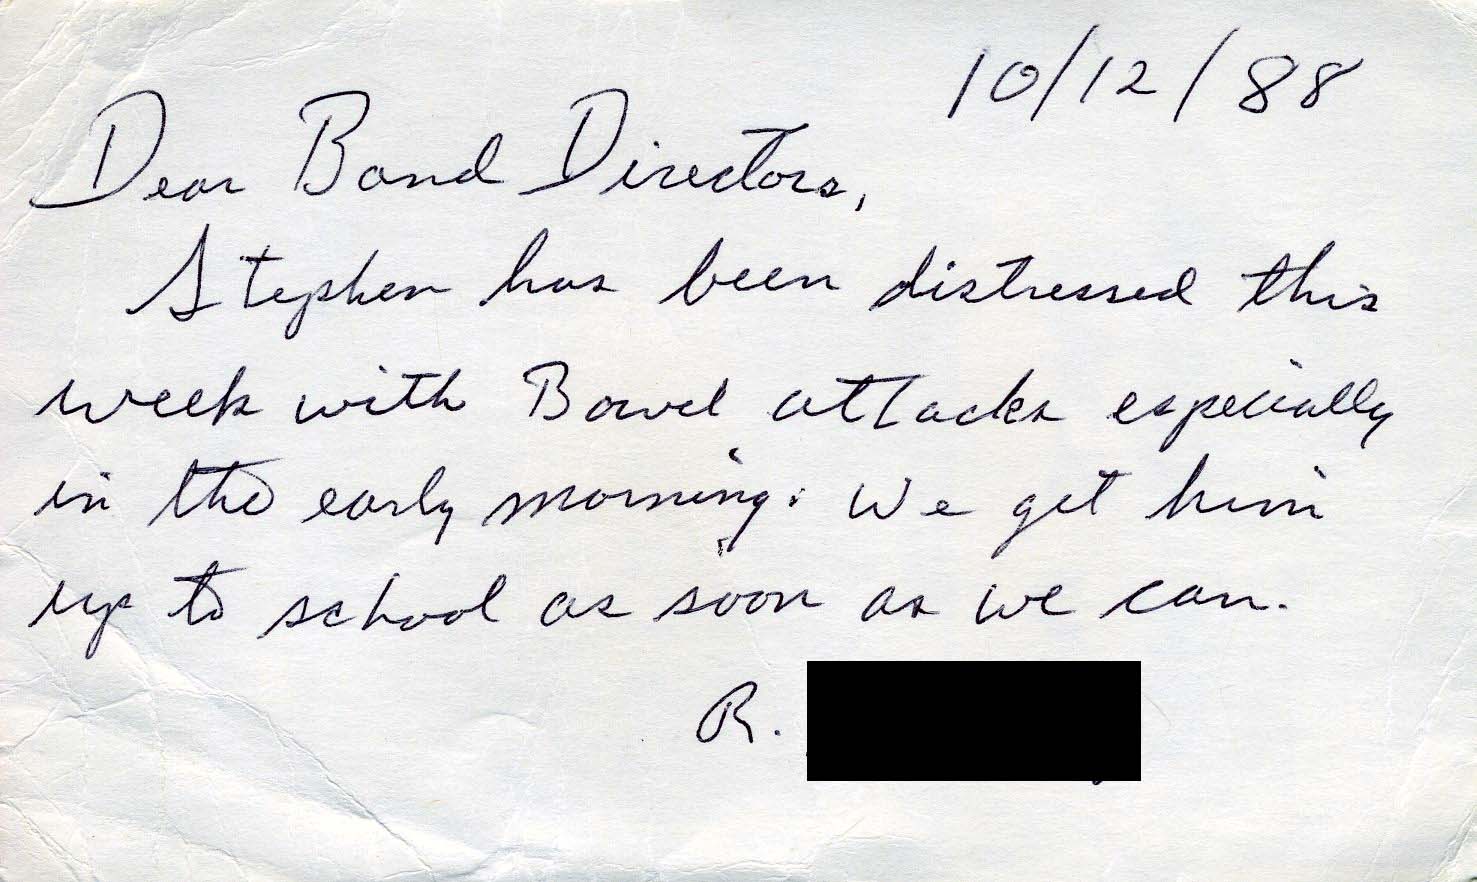 10/12/88
Dear Band Directors,
Stephen has been distressed this
week with Bowel attacks especially
in the early morning. We get him
up to school as soon as we can.
R.